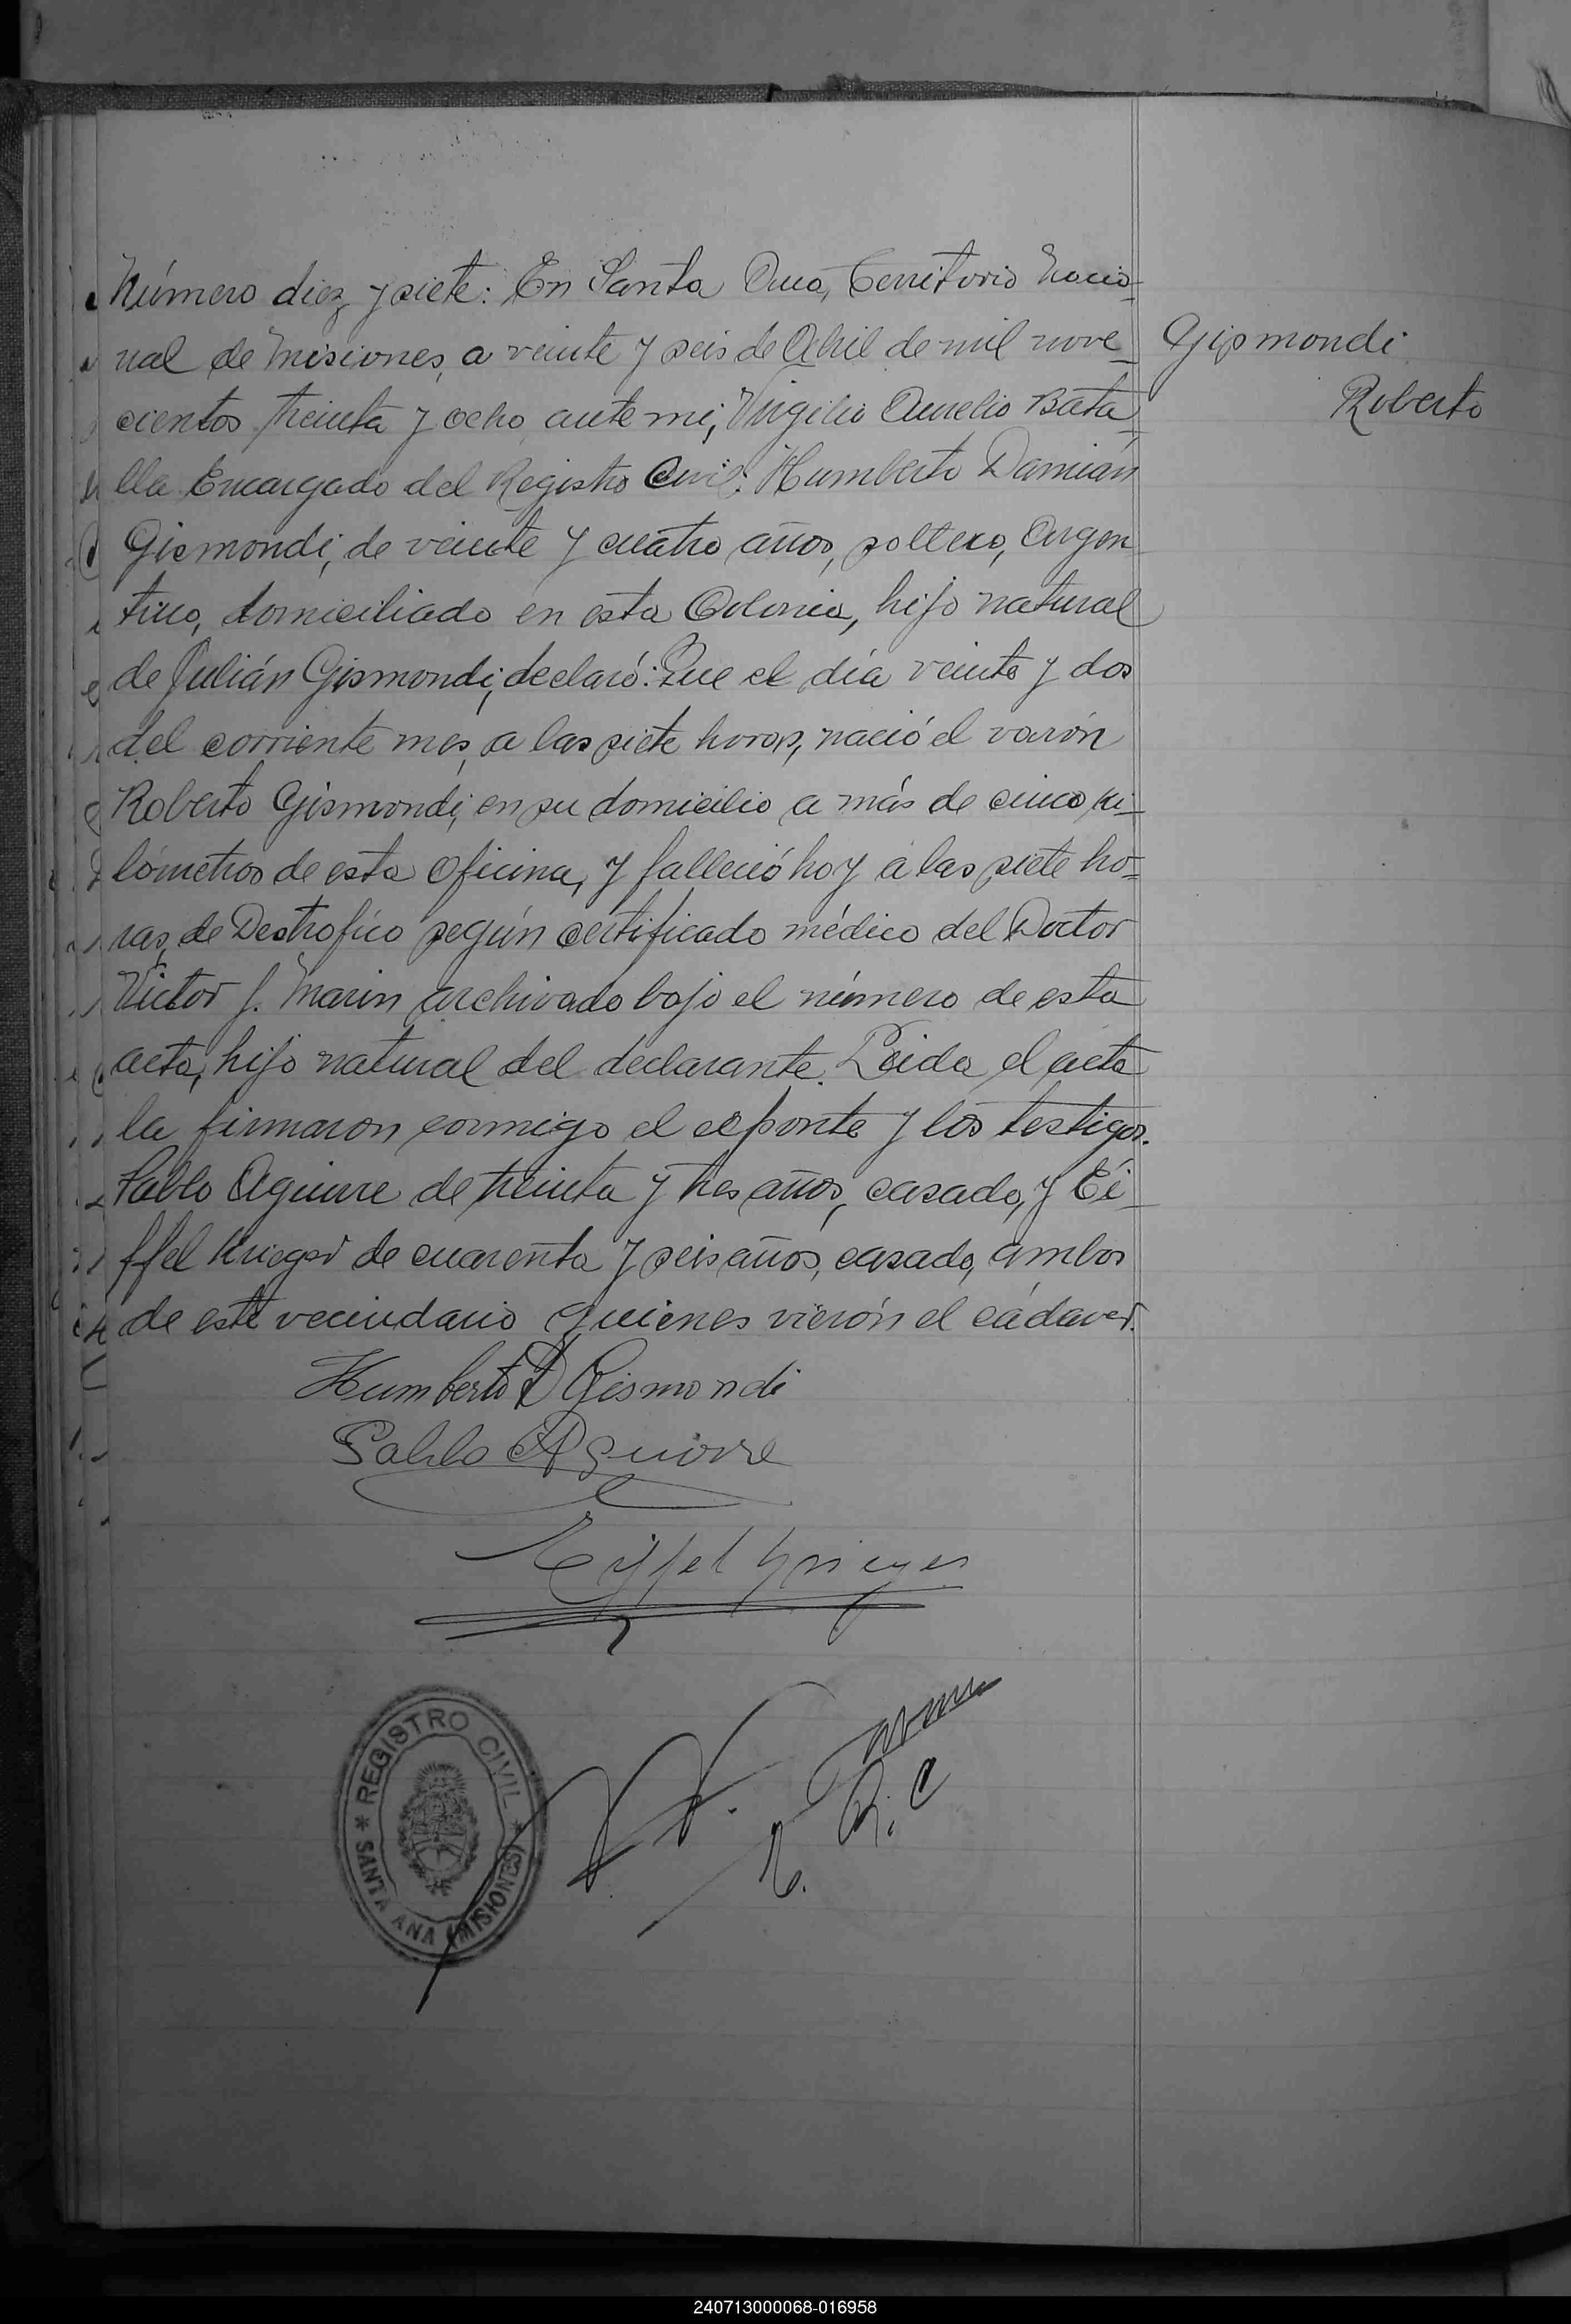 Número diez y siete: En Santa Ana, Territorio Nacio-
nal de Misiones, a veinte y seis de Abril de mil nove-
cientos treinta y ocho, ante mi, Virgilio Aurelio Bata-
lla Encargado del Registro Civil: Humberto Damián
Gismondi, de veinte y cuatro años, soltero, Argen-
tino, domiciliado en esta Colonia, hijo natural
de Julián Gismondi, declaró: Que el día veinte y dos
del corriente mes, a las siete horas, nació el varón
Roberto Gismondi, en su domicilio a más de cinco ki-
lómetros de esta Oficina, y falleció hoy a las siete ho-
ras, de Destrofico según certificado médico del Doctor
Victor J. Marin archivado bajo el número de esta
acta, hijo natural del declarante. Leida el acta
la firmaron conmigo el exponte y los testigos.
Pablo Aguirre de treinta y tres años, casado, y Éi-
ffel Krieger de cuarenta y seis años, casado, ambos
de este vecindario quienes vierón el cádaver.
Gismondi
Roberto
Humberto D Gismondi
Pablo Aguirre
Eiffel Krieger
REGISTRO CIVIL
SANTA ANA (MISIONES)
E. R. C
240713000068-016958